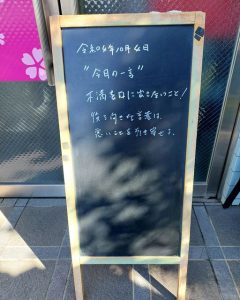 令和6年10月4日
"今日の一言"
不満を口に出さないこと！
後ろ向きな言葉は
悪いことを引き寄せる。